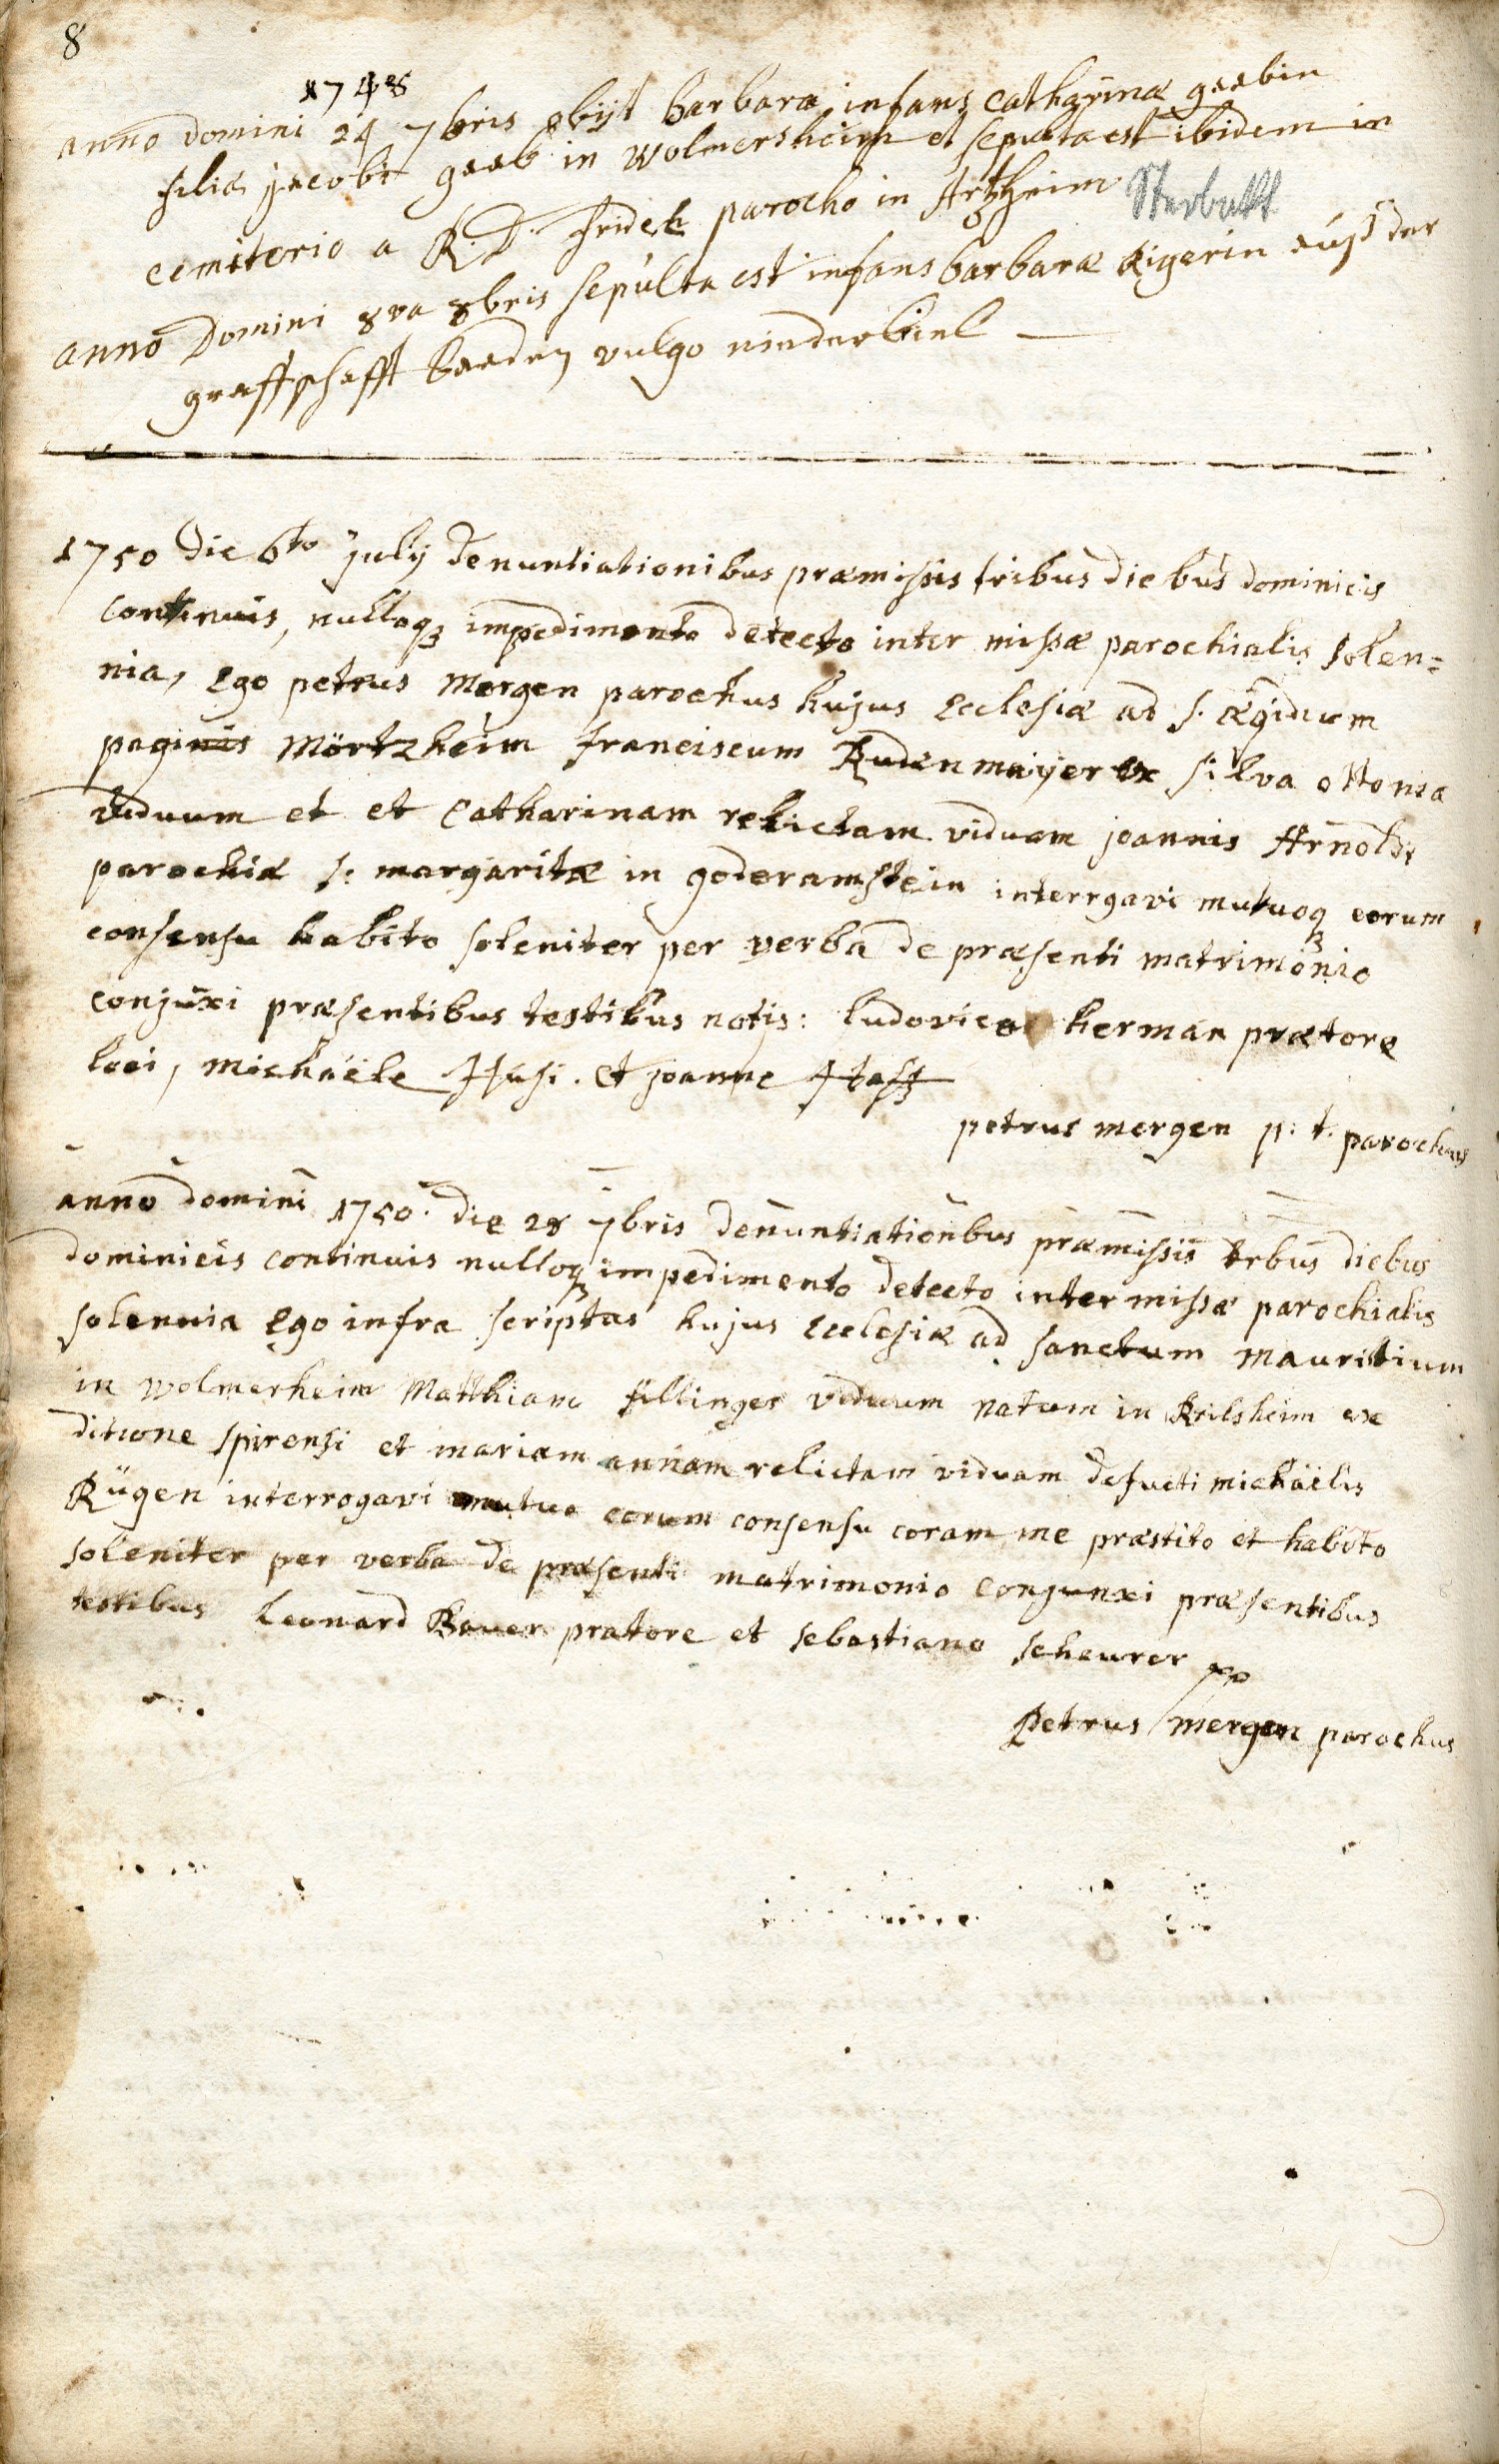 8
1748
anno domini 24 7bris obijt barbara infans catharinæ gaabin
filia jacobi gaab in wolmersheim et sepulta est ibidem in
cemiterio a R. D. fridel parocho in Artzheim
anno Domini 8va 8bris sepulta est infans barbaræ Rigerin auß der
graffschafft baaden vulgo niderbiel
1750 Die 6to july denuntiationibus præmissis tribus diebus dominicis
continuis, nulloq impedimento detecto inter missæ parochialis solen=
nia, Ego petrus Mergen parochus hujus Ecclesiæ ad s. ægidium
pagi Mörtzheim franciscum Rudenmaijer ex silva ottonia
viduum et et Catharinam relictam viduam joannis Arnoldi
parochiæ s: margaritæ in goderamstein interrgavi mutuoq eorum
consensu habito soleniter per verba de præsenti matrimonio
conjuxi præsentibus testibus notis: ludovico herman prætore
loci, michaële Husi. et joanne
petrus mergen p: t. parochus
anno domini 1750. die 28 7bris denuntiationbus præmissis trbus diebus
dominicis continuis nulloq impedimento detecto inter missæ parochialis
solennia Ego infra scriptus hujus Ecclesiæ ad sanctum mauritium
in wolmerheim Matthiam fillinger viduum natum in Krilsheim ex
ditione spirensi et mariam annam relictam viduam defucti michaëlis
Rügen interrogavi mutuo eorum consensu coram me præstito et habito
soleniter per verba de præsenti matrimonio conjunxi præsentibus
testibus Leonard Bauer prætore et sebastiano scheurer
Petrus mergen parochus